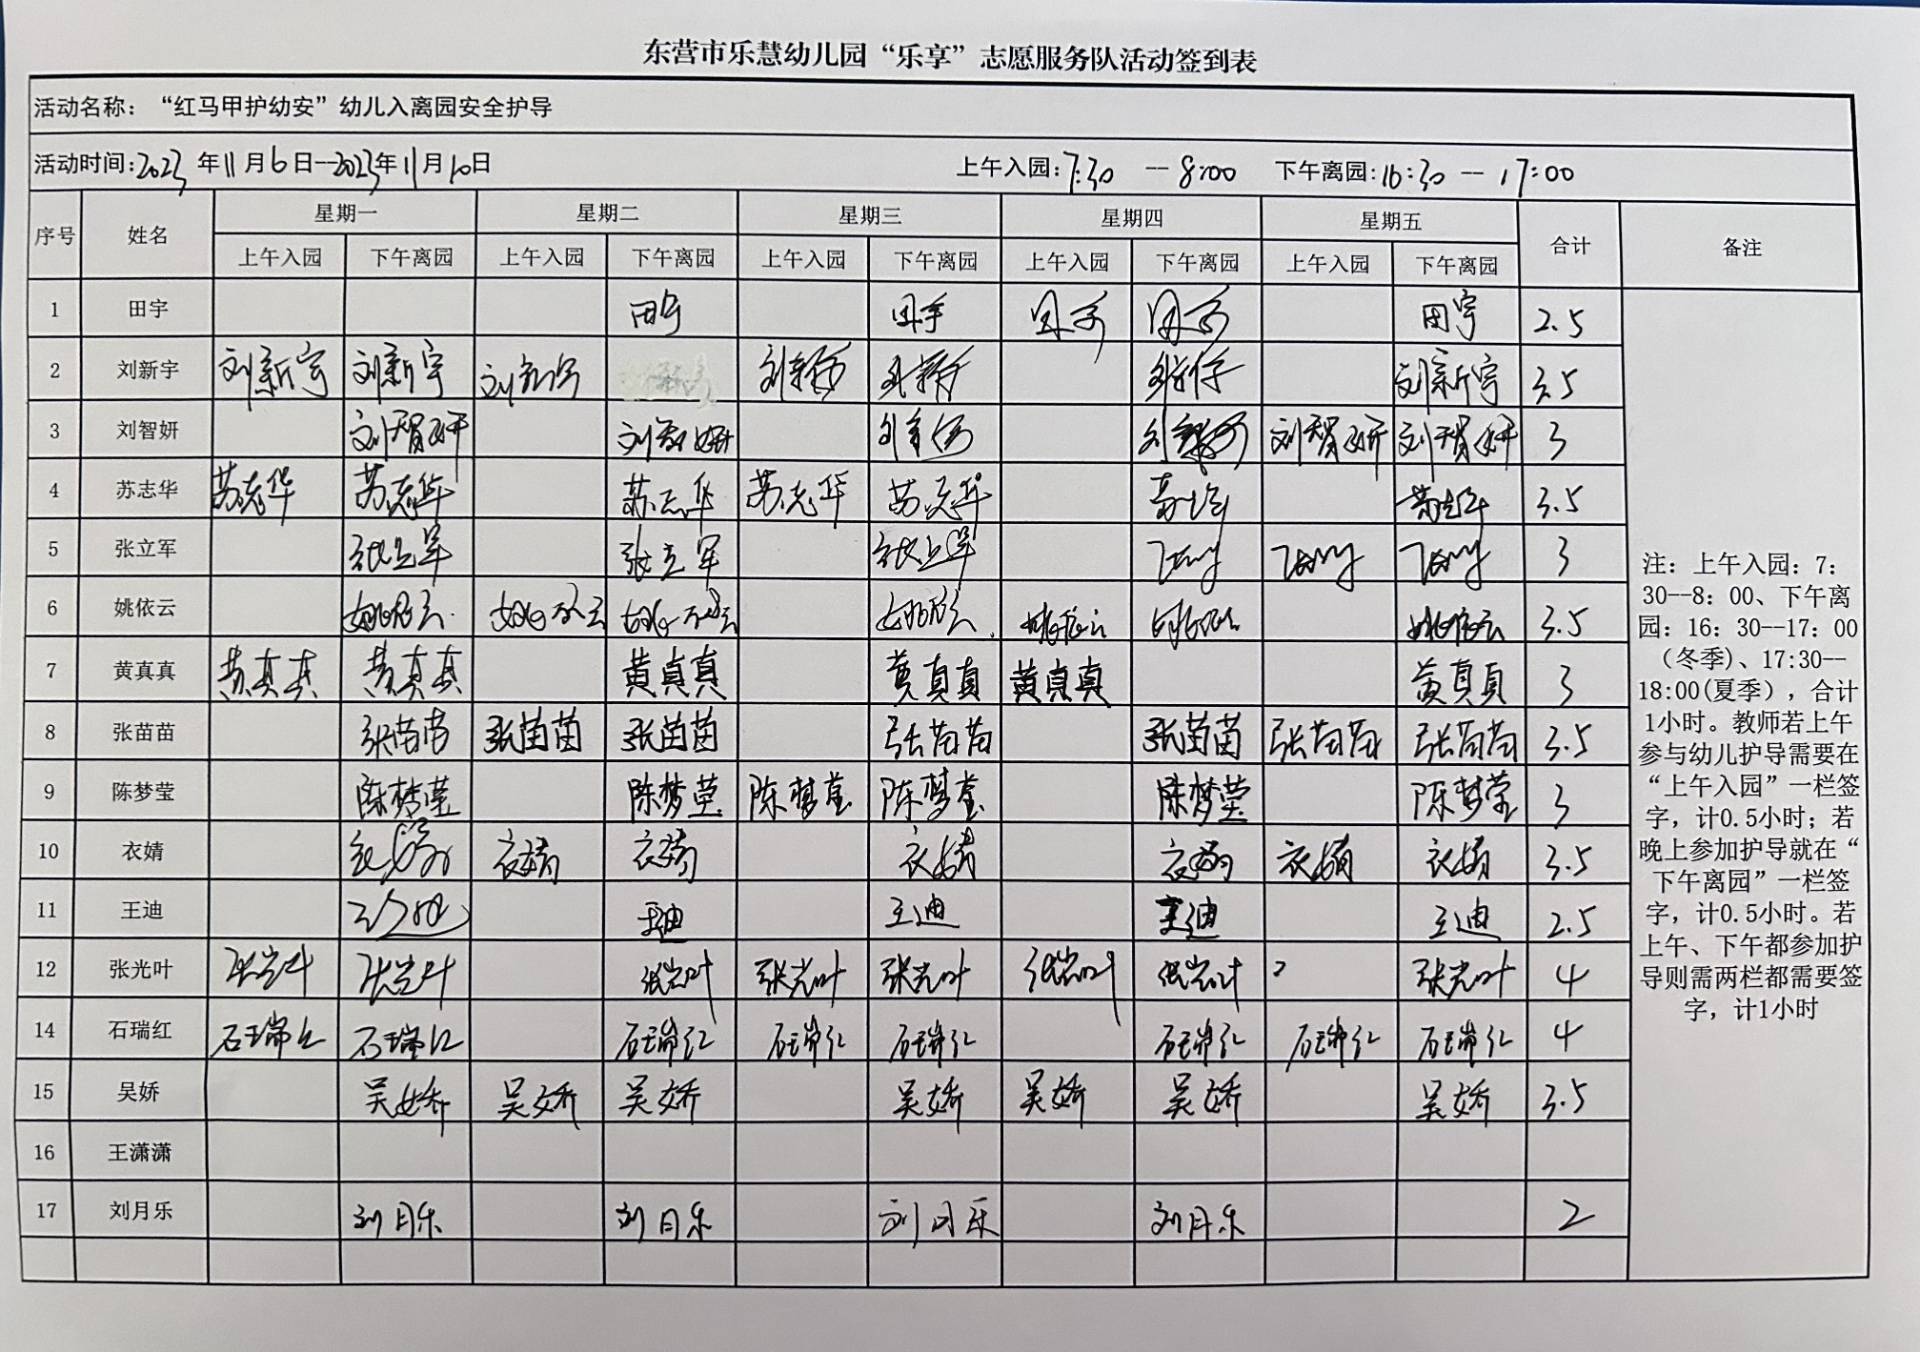 东营市乐慧幼儿园“乐享”志愿服务队活动签到表
活动名称：“红马甲护幼安”幼儿入离园安全护导
活动时间:2023年11月6日--2023年11月10日 上午入园:7:30 -- 8:00 下午离园:16:30 -- 17:00
序号 姓名 星期一 星期二 星期三 星期四 星期五 合计 备注
上午入园 下午离园 上午入园 下午离园 上午入园 下午离园 上午入园 下午离园 上午入园 下午离园
1 田宇 田宇 田宇 田宇 田宇 田宇 2.5
2 刘新宇 刘新宇 刘新宇 刘新宇 刘新宇 刘新宇 刘新宇 刘新宇 3.5
3 刘智妍 刘智妍 刘智妍 刘智妍 刘智妍 3
4 苏志华 苏志华 苏志华 苏志华 苏志华 苏志华 苏志华 3.5
5 张立军 张立军 张立军 张立军 3
6 姚依云 姚依云 姚依云 姚依云 姚依云 姚依云 姚依云 姚依云 3.5
7 黄真真 黄真真 黄真真 黄真真 黄真真 黄真真 黄真真 3
8 张苗苗 张苗苗 张苗苗 张苗苗 张苗苗 张苗苗 张苗苗 张苗苗 3.5
9 陈梦莹 陈梦莹 陈梦莹 陈梦莹 陈梦莹 陈梦莹 陈梦莹 3
10 衣婧 衣婧 衣婧 衣婧 衣婧 衣婧 衣婧 3.5
11 王迪 王迪 王迪 王迪 王迪 2.5
12 张光叶 张光叶 张光叶 张光叶 张光叶 张光叶 张光叶 张光叶 张光叶 4
14 石瑞红 石瑞红 石瑞红 石瑞红 石瑞红 石瑞红 石瑞红 石瑞红 石瑞红 4
15 吴娇 吴娇 吴娇 吴娇 吴娇 吴娇 吴娇 吴娇 3.5
16 王潇潇
17 刘月乐 刘月乐 刘月乐 刘月乐 刘月乐 2
注：上午入园：7：
30--8：00、下午离
园：16：30--17：00
（冬季）、17:30--
18:00(夏季），合计
1小时。教师若上午
参与幼儿护导需要在
“上午入园”一栏签
字，计0.5小时；若
晚上参加护导就在“
下午离园”一栏签
字，计0.5小时。若
上午、下午都参加护
导则需两栏都需要签
字，计1小时